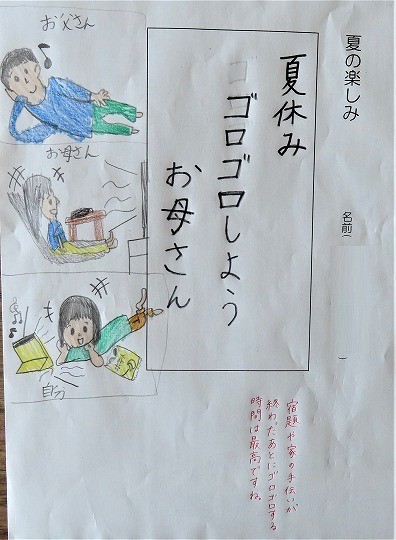 夏の楽しみ
名前（　）
夏休み
ゴロゴロしよう
お母さん
お父さん
お母さん
自分
宿題や家の手伝いが
終わったあとにゴロゴロする
時間は最高ですね。